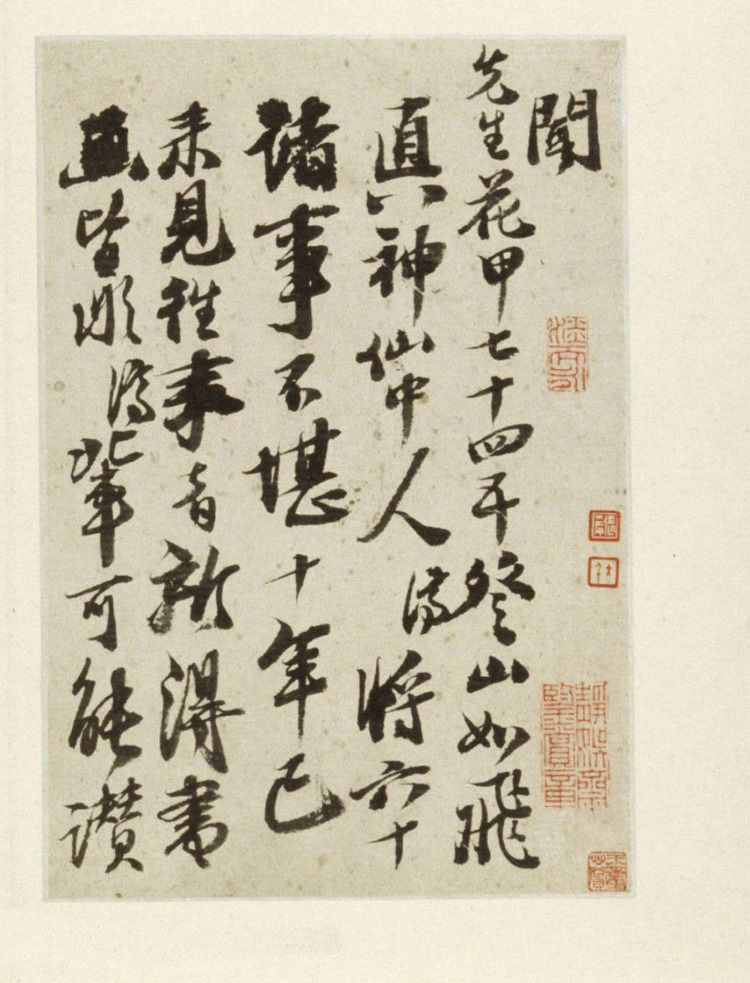 聞
先生花甲七十四五登山如飛
真神仙中人濟將六十
諸事不堪十年已
來見往來者所得書
畫皆非濟輩可能讚